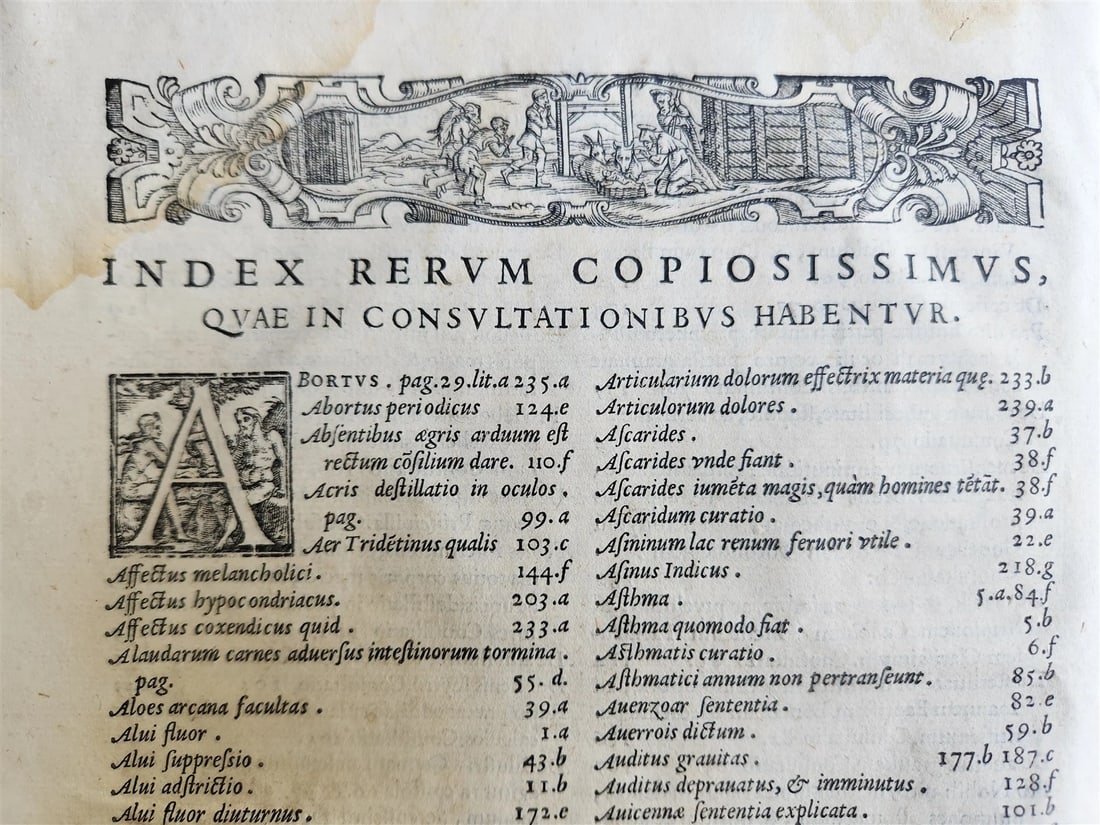 INDEX RERVM COPIOSISSIMVS,
QVAE IN CONSVLTATIONIBVS HABENTVR.
ABORTVS . pag.29.lit.a 235.a
Abortus periodicus 124.e
Abſentibus ægris arduum eſt
rectum cõſilium dare. 110.f
Acris deſtillatio in oculos .
pag. 99.a
Aer Tridẽtinus qualis 103.c
Affectus melancholici . 144.f
Affectus hypocondriacus. 203.a
Affectus coxendicus quid . 233.a
Alaudarum carnes aduerſus inteſtinorum tormina .
pag. 55. d.
Aloes arcana facultas . 39.a
Alui fluor . 1.a
Alui ſuppreſſio . 43.b
Alui adſtrictio . 11.b
Alui fluor diuturnus . 172.e
Articularium dolorum effectrix materia quę. 233.b
Articulorum dolores . 239.a
Aſcarides . 37.b
Aſcarides vnde fiant . 38.f
Aſcarides iumẽta magis, quàm homines tẽtāt. 38.f
Aſcaridum curatio . 39.a
Aſininum lac renum feruori vtile . 22.e
Aſinus Indicus . 218.g
Aſthma . 5.a,84.f
Aſthma quomodo fiat . 5.b
Aſthmatis curatio . 6.f
Aſthmatici annum non pertranſeunt . 85.b
Auenzoar ſententia . 82.e
Auerrois dictum . 59.b
Auditus grauitas . 177.b 187.c
Auditus deprauatus, & imminutus . 128.f
Auicennæ ſententia explicata . 101.b